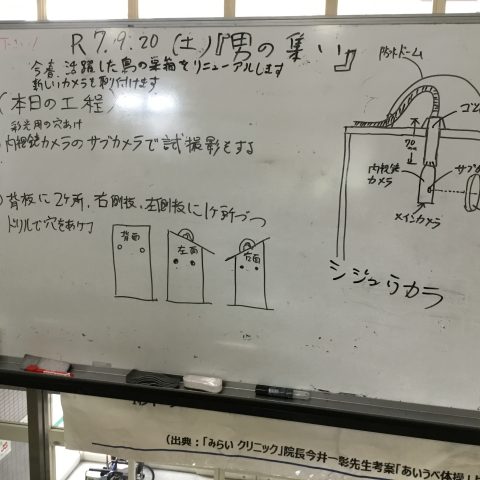 R7.9.20 (土)『男の集い』
今春、活躍した鳥の巣箱をリニューアルします
新しいカメラを取り付けます
(本日の工程)
彩光用の穴あけ
内視鏡カメラのサブカメラで試撮影をする
背板に2ヶ所、右側板、左側板に1ヶ所づつ
ドリルで穴をあけ
背面
左面
右面
ドーム
ゴム
70mm
内視鏡
カメラ
サブ
メインカメラ
シジュウカラ
(出典:「みらい クリニック」院長今井一彰先生考案「あいうべ体操」